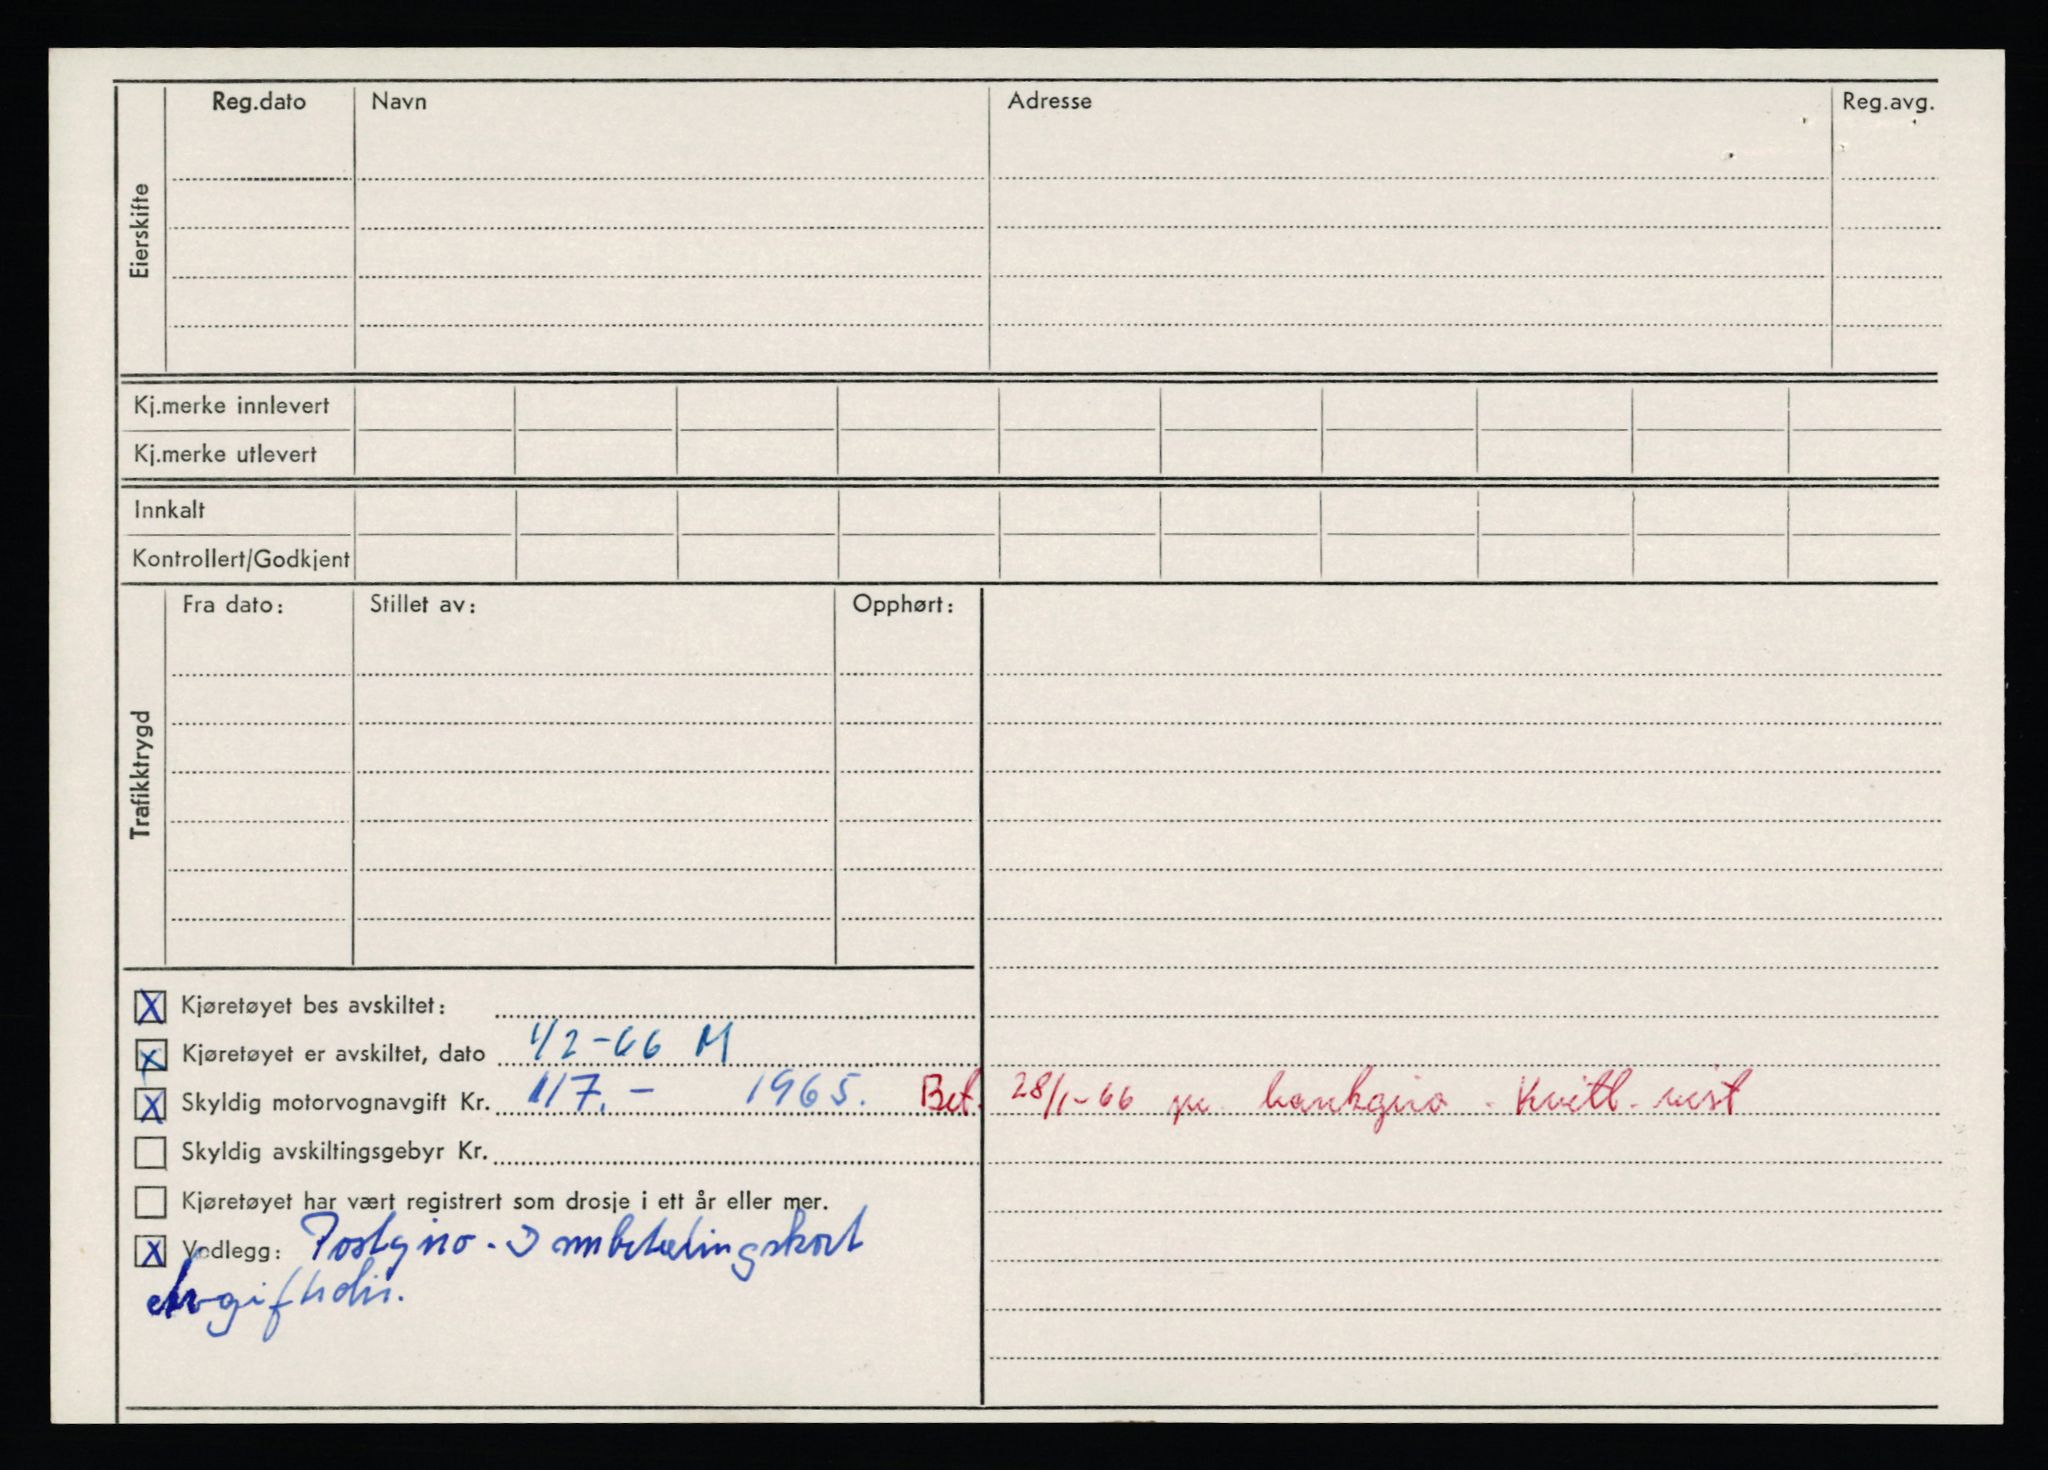 Reg.dato Navn Adresse Reg.avg.
Eierskifte
Kj.merke innlevert
Kj.merke utlevert
Innkalt
Kontrollert/Godkjent
Fra dato: Stillet av: Opphørt:
Trafikktrygd
X Kjøretøyet bes avskiltet:
X Kjøretøyet er avskiltet, dato 1/2-66 M
X Skyldig motorvognavgift Kr. 117.- 1965. Bet. 28/1-66 pr. bankgiro - Kvitt. vist
Skyldig avskiltingsgebyr Kr.
Kjøretøyet har vært registrert som drosje i ett år eller mer.
X Vedlegg: Postgiro - Innbetalingskort